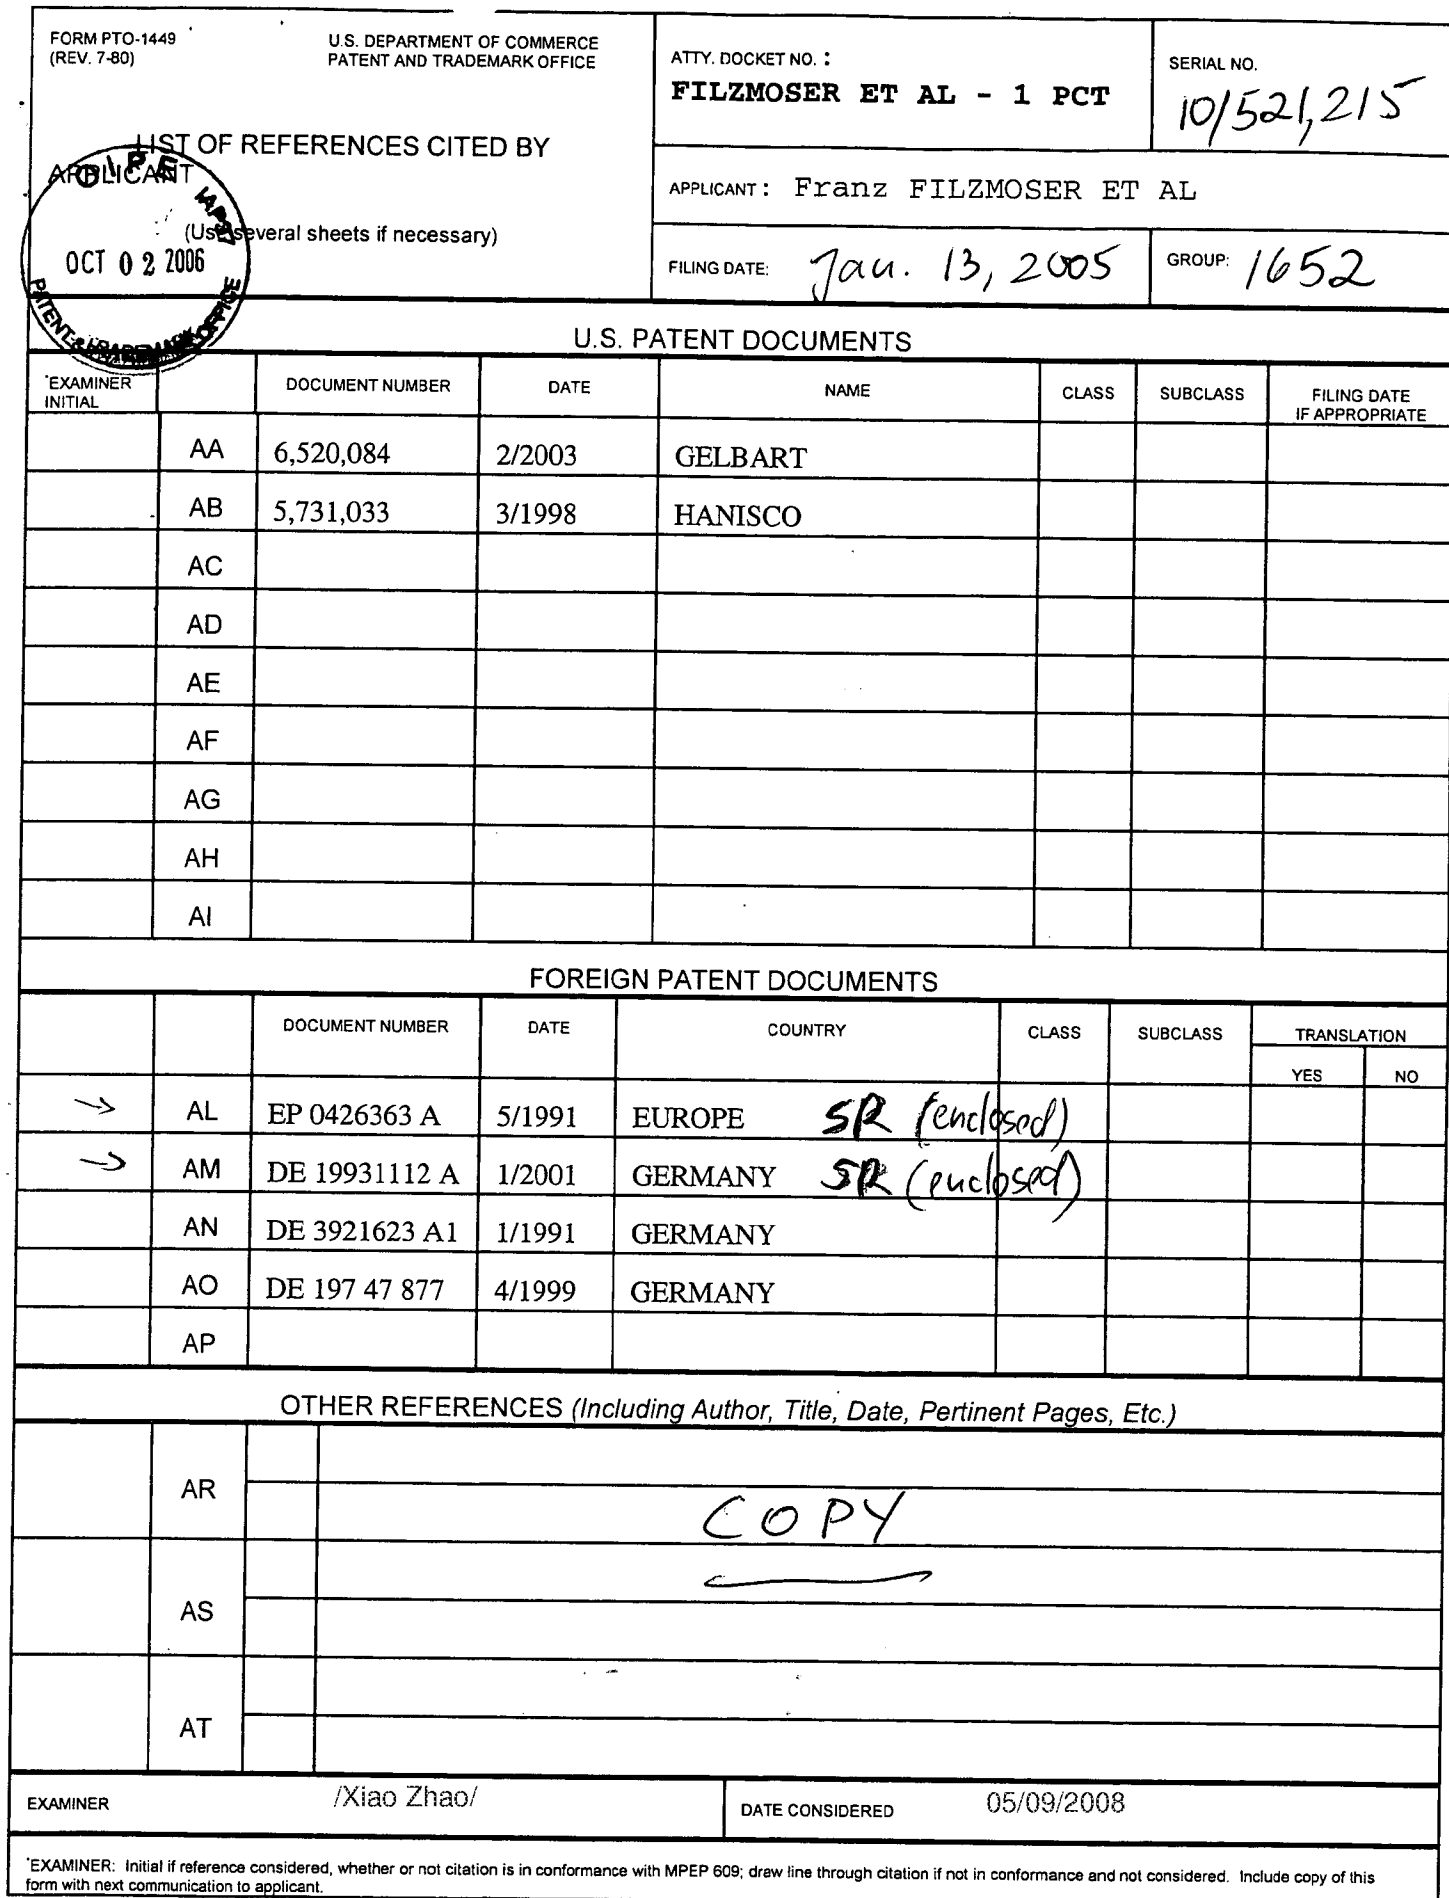 FORM PTO-1449
(REV. 7-80)
U.S. DEPARTMENT OF COMMERCE
PATENT AND TRADEMARK OFFICE
LIST OF REFERENCES CITED BY
APPLICANT
(Use several sheets if necessary)
O I P E IAP37
OCT 02 2006
PATENT & TRADEMARK OFFICE
ATTY. DOCKET NO. :
FILZMOSER ET AL - 1 PCT
SERIAL NO.
10/521,215
APPLICANT : Franz FILZMOSER ET AL
FILING DATE: Jan. 13, 2005
GROUP: 1652
U.S. PATENT DOCUMENTS
*EXAMINER INITIAL DOCUMENT NUMBER DATE NAME CLASS SUBCLASS FILING DATE IF APPROPRIATE
AA 6,520,084 2/2003 GELBART
AB 5,731,033 3/1998 HANISCO
AC
AD
AE
AF
AG
AH
AI
FOREIGN PATENT DOCUMENTS
DOCUMENT NUMBER DATE COUNTRY CLASS SUBCLASS TRANSLATION
YES NO
→ AL EP 0426363 A 5/1991 EUROPE SR (enclosed)
→ AM DE 19931112 A 1/2001 GERMANY SR (enclosed)
AN DE 3921623 A1 1/1991 GERMANY
AO DE 197 47 877 4/1999 GERMANY
AP
OTHER REFERENCES (Including Author, Title, Date, Pertinent Pages, Etc.)
AR
COPY
AS
AT
EXAMINER /Xiao Zhao/ DATE CONSIDERED 05/09/2008
*EXAMINER: Initial if reference considered, whether or not citation is in conformance with MPEP 609; draw line through citation if not in conformance and not considered. Include copy of this
form with next communication to applicant.